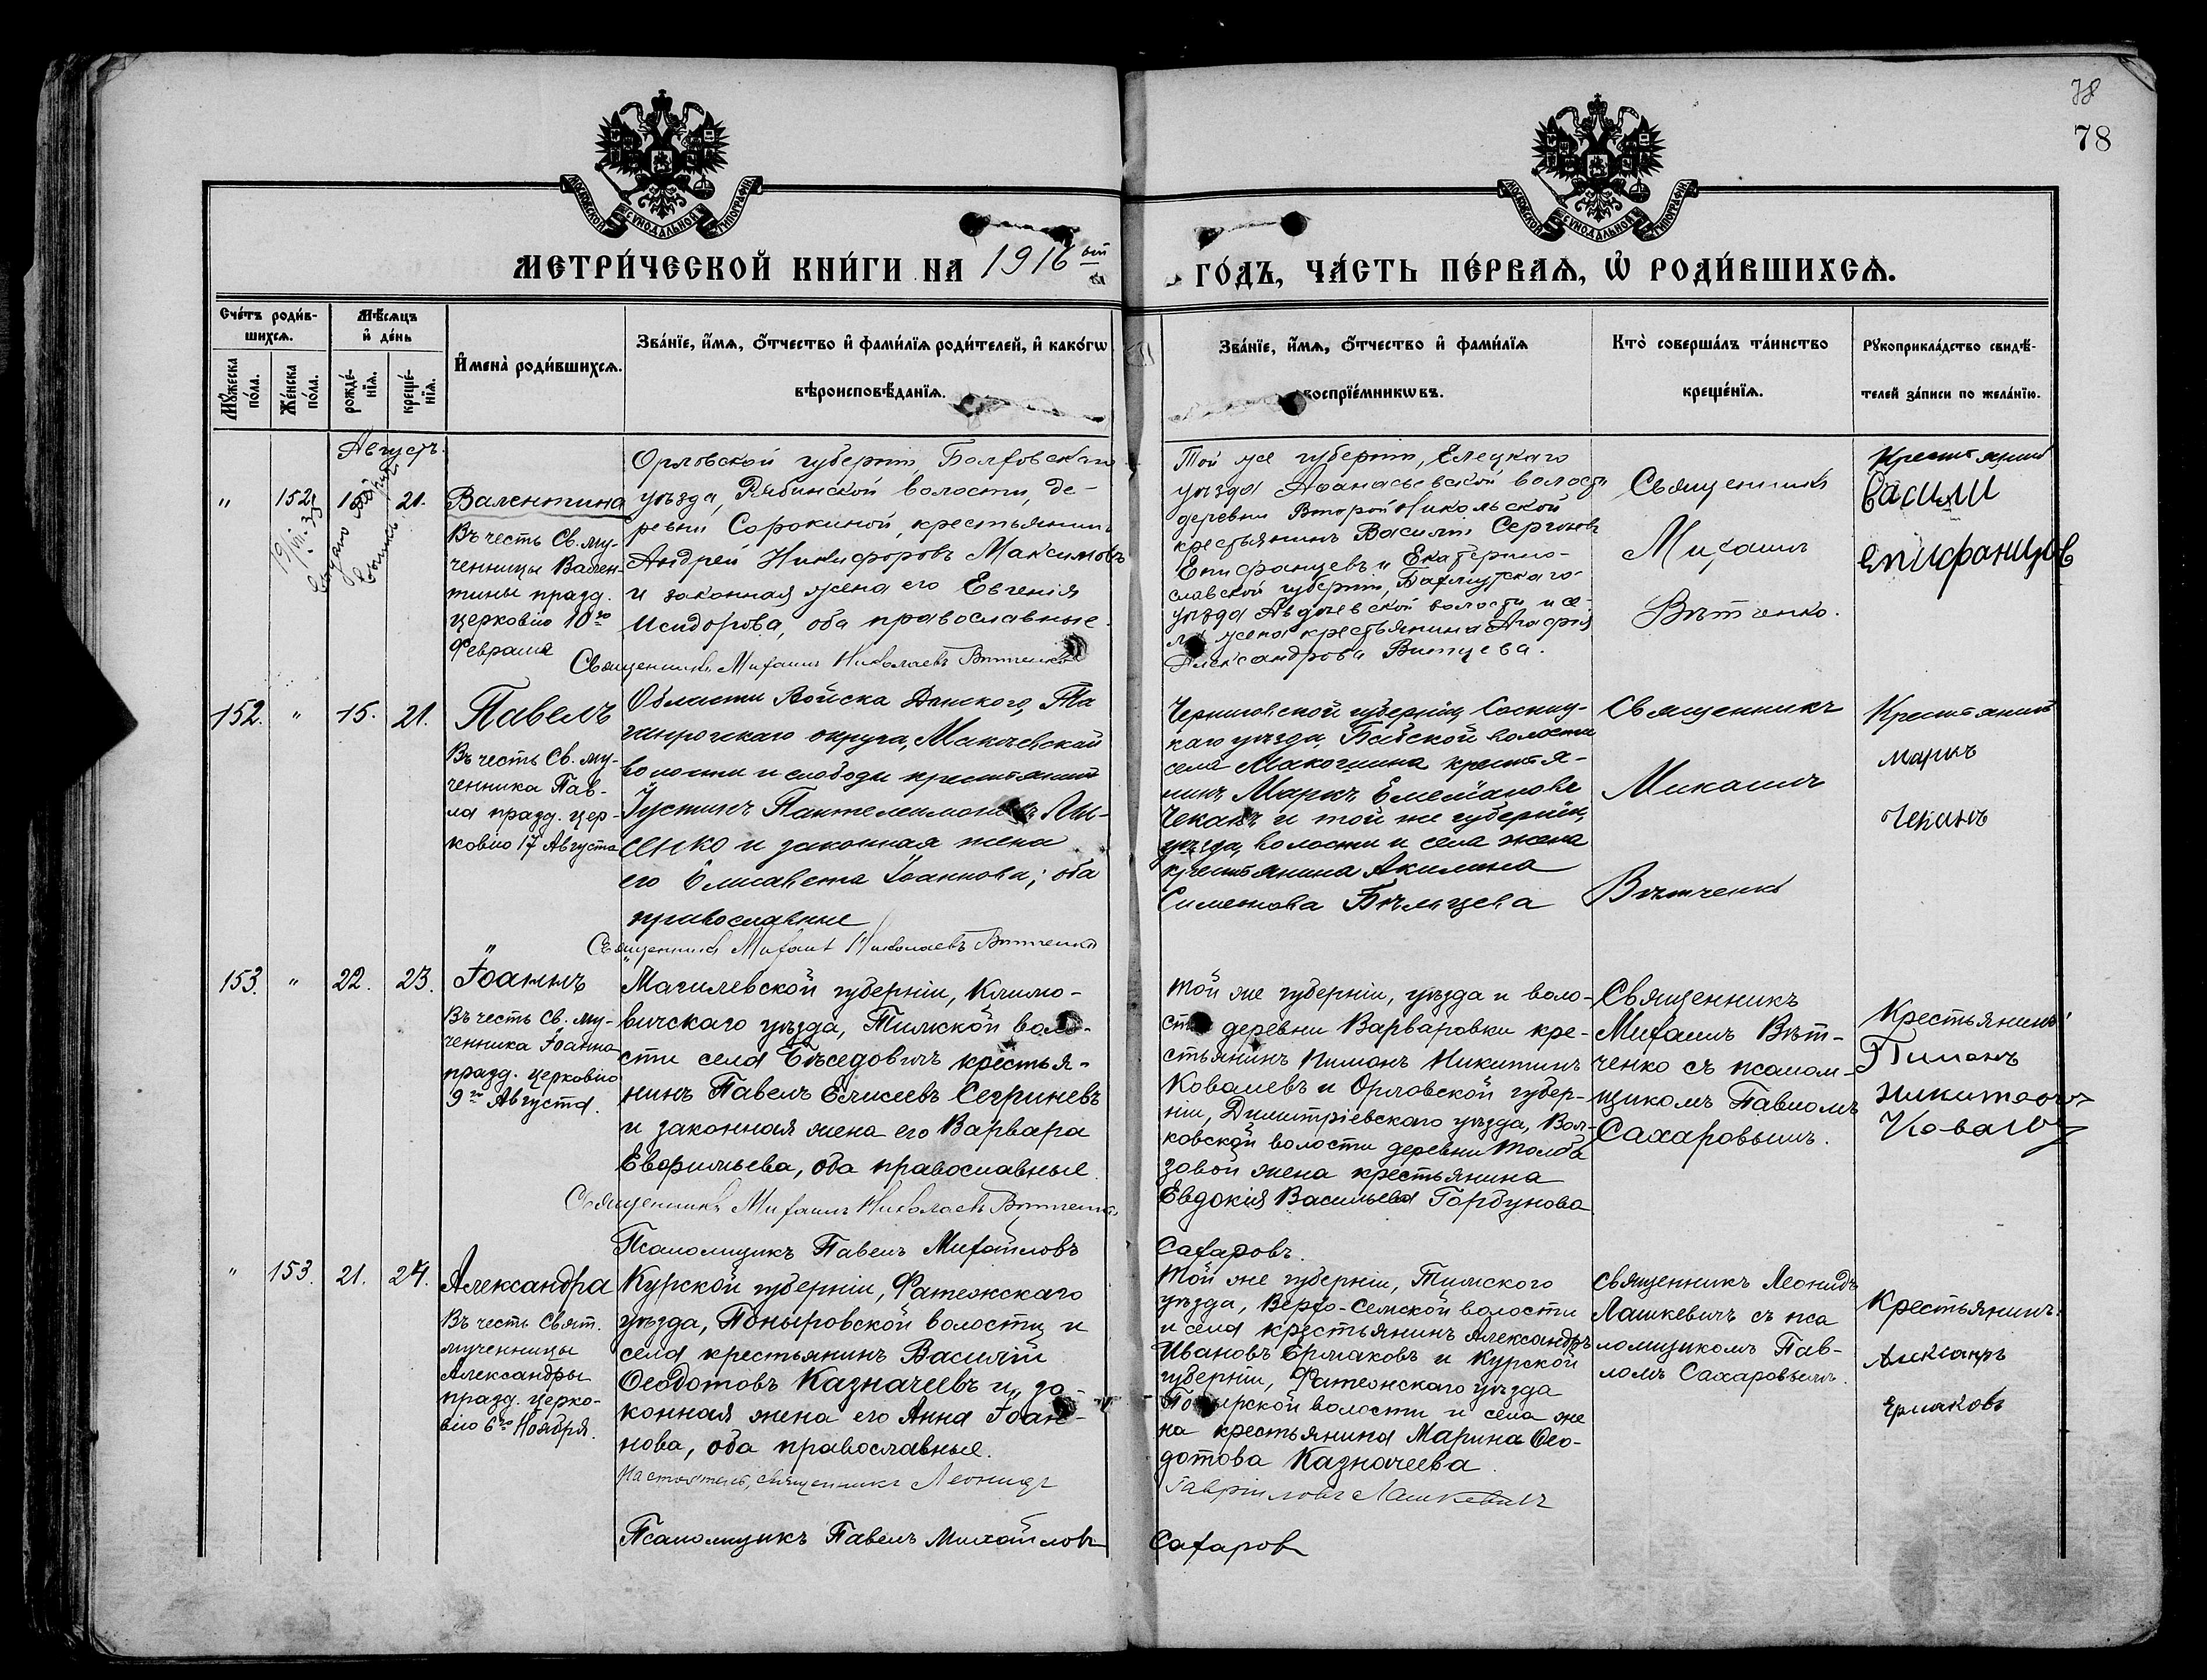 78
78
МОСКОВСКОЙ СѴНОДАЛЬНОЙ ТИПОГРАФІИ
МОСКОВСКОЙ СѴНОДАЛЬНОЙ ТИПОГРАФІИ
МЕТРИ́ЧЕСКОЙ КНИ́ГИ НА 1916 ый
ГО́ДЪ, ЧА́СТЬ ПЕ́РВАѦ, Ѡ҆ РОДИ́ВШИХСѦ.
Сче́тъ роди́в-
шихсѧ.
Мꙋжеска по́ла.
Же́нска по́ла.
Мѣ́сѧцъ
и҆ де́нь
рожде́-
нїѧ.
креще́-
нїѧ.
И҆мена̀ роди́вшихсѧ.
Зва́нїе, и҆́мѧ, ѻ҆́тчество и҆ фами́лїѧ роди́телей, и҆ како́гѡ
вѣроисповѣ́данїѧ.
Зва́нїе, и҆́мѧ, ѻ҆́тчество и҆ фами́лїѧ
воспрїе́мникѡвъ.
Кто̀ соверша́лъ та́инство
креще́нїѧ.
Рꙋкоприкла́дство свидѣ́-
телей за́писи по жела́нїю.
Августъ.
" 152. 21.
Валентина
Въ честь Св. му-
ченницы Вален-
тины празд.
церковію 10го
Февраля
Орловской губерніи, Болховскаго
уѣзда, Рябинской волости, де-
ревни Сорокиной, крестьянинъ
Андрей Никифоровъ Максимовъ
и законная жена его Евгенія
Исидорова, оба православные
Священникъ Михаилъ Николаевъ Вѣтченко
Той же губерніи, Елецкаго
уѣзда Афанасьевской волости
деревни Второй Никольской
крестьянинъ Василій Сергѣевъ
Епифанцевъ и Екатерино-
славской губерніи, Бахмутскаго
уѣзда Авдѣевской волости и се-
ла жена крестьянина Агафія
Александрова Витцева.
Священникъ
Михаилъ
Вѣтченко.
Крестьянинъ
Василий
Епифанцов
152. " 15. 21.
Павелъ
Въ честь Св. му-
ченника Пав-
ла празд. цер-
ковію 17 Августа
Области Войска Донского, Та
ганрогскаго округа, Макѣевской
волости и слободы крестьянинъ
Іустинъ Пантелеимоновъ Лы-
сенко и законная жена
его Елисавета Іоаннова; оба
православные
Священникъ Михаилъ Николаевъ Вѣтченко
Черниговской губерніи, Сосниц-
каго уѣзда, Бабской волости
села Макошина крестья-
нинъ Маркъ Емельяновъ
Чеканъ и той же губерніи,
уѣзда, волости и села жена
крестьянина Акилина
Симеонова Бѣльцева
Священникъ
Михаилъ
Вѣтченко
Крестьянинъ
Маркъ
Чеканъ
153. " 22. 23.
Іоаннъ
Въ честь св. му-
ченника Іоанна
празд. церковію
9го Августа.
Магилевской губерніи, Климо-
вичскаго уѣзда, Тимской воло-
сти села Бѣседовичъ крестья-
нинъ Павелъ Елисеевъ Сегриневъ
и законная жена его Варвара
Евфильева, оба православные
Священникъ Михаилъ Николаевъ Вѣтченко
Псаломщикъ Павелъ Михайловъ
Той же губерніи, уѣзда и воло-
сти деревни Варваровки кре-
стьянинъ Пиманъ Никитинъ
Ковалевъ и Орловской губер-
ніи, Димитріевскаго уѣзда, Вол-
ковской волости деревни Толба
зовой жена крестьянина
Евдокія Васильева Горбунова
Сахаровъ.
Священникъ
Михаилъ Вѣт-
ченко съ псалом-
щикомъ Павломъ
Сахаровымъ.
Крестьянинъ
Пиманъ
Ковалев
" 153. 21. 24.
Александра
Въ честь Свят.
мученницы
Александры
празд. церко-
вію 6го Ноября.
Курской губерніи, Фатежскаго
уѣзда, Поныровской волости и
села крестьянинъ Василій
Ѳеодотовъ Казначеевъ и за-
конная жена его Анна Іоан-
нова, оба православные.
Настоятель, священникъ Леонидъ
Псаломщикъ Павелъ Михайловъ
Той же губерніи, Тимского
уѣзда, Верхо-Семской волости
и села крестьянинъ Александръ
Ивановъ Ермаковъ и Курской
губерніи, Фатежскаго уѣзда
Понырской волости и села же
на крестьянина Марина Ѳео-
дотова Казначеева.
Гавріиловъ Лашкевичъ
Сахаровъ
Священникъ Леонидъ
Лашкевичъ съ пса
ломщикомъ Пав-
ломъ Сахаровымъ.
Крестьянинъ.
Александръ
Ермаковъ